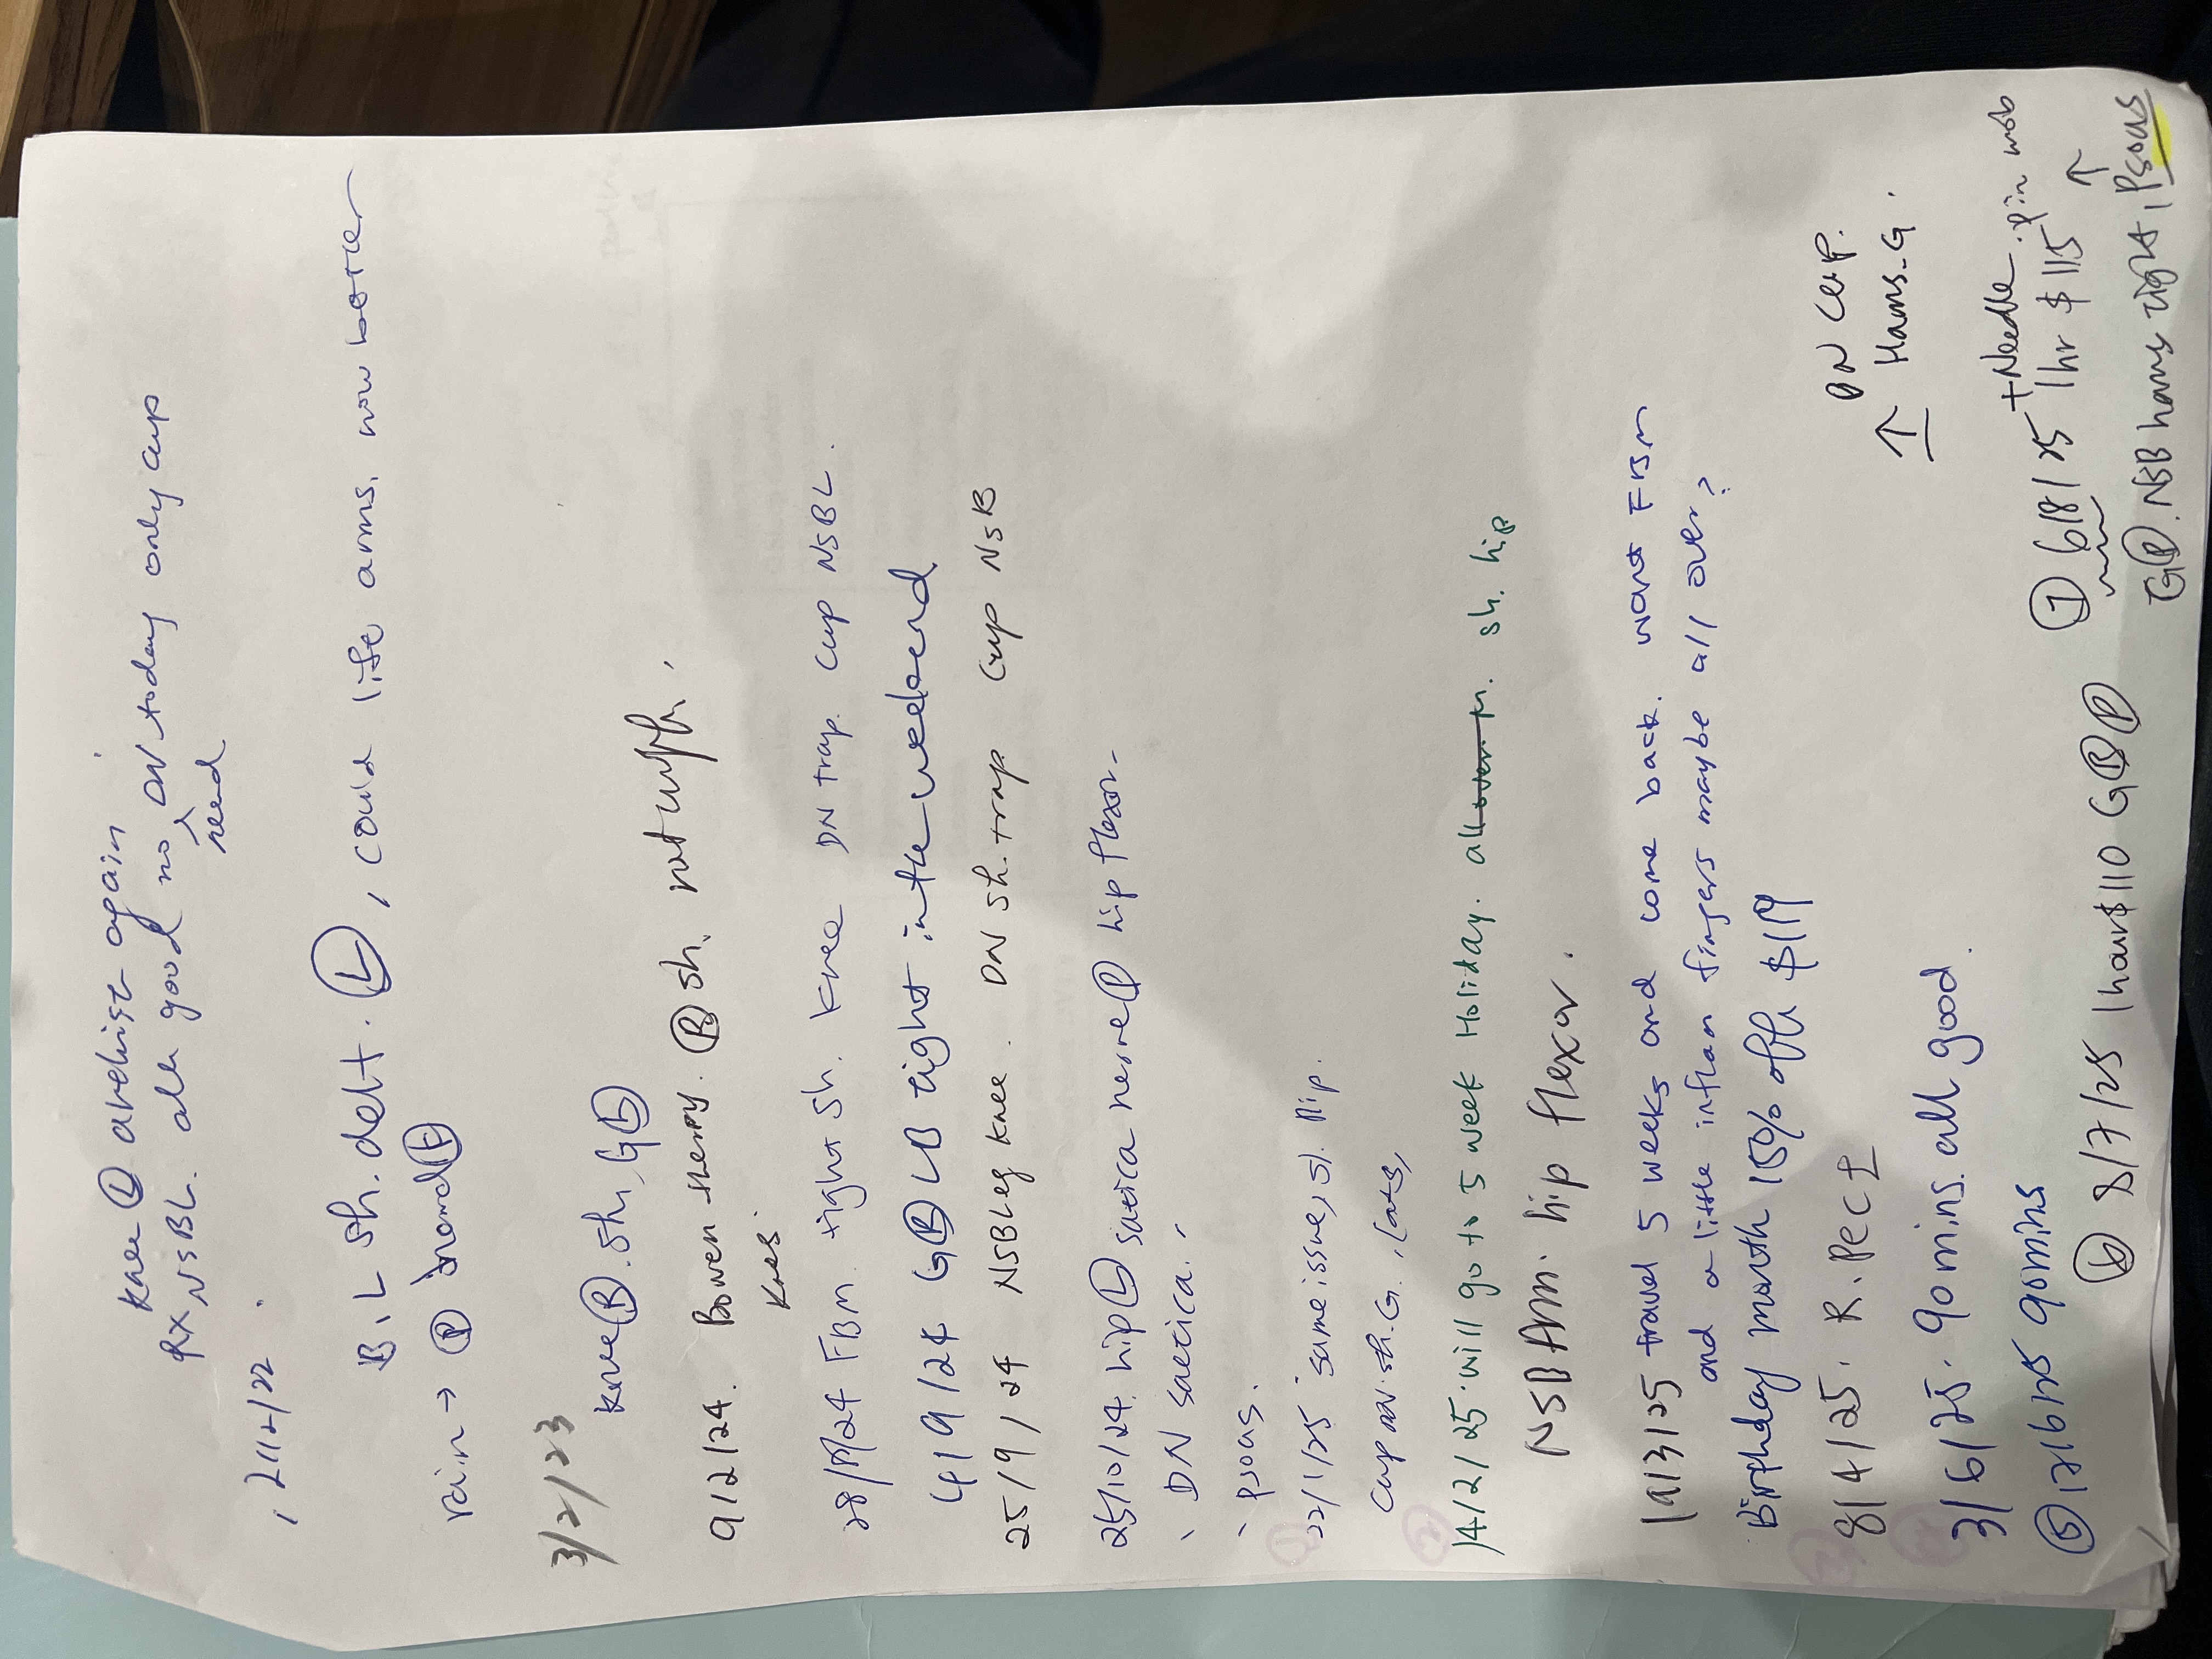 knee Ⓛ
again
Rx NSBL. all good no DN today only cup
need
, 21/12/22 .
B. L sh. delt. Ⓛ, could life arms, now better
pain → Ⓡ
3/2/23
knee Ⓡ. sh, G Ⓛ
9/2/24. Bowen therapy. Ⓡ sh,
knees
28/8/24 FBM. tight sh. knee DN trap. Cup NSBL.
4/9/24 G Ⓡ LB tight in the weekend
25/9/24 NSB Leg knee. DN sh. trap Cup NSB
25/10/24. hip Ⓛ satica nerve Ⓡ hip flexor.
, DN saetica.
, psoas.
22/1/25 same issue, sh. hip.
Cup sh. G. Lats,
14/2/25. will go to 5 week Holiday. sh. hip
NSB Arm. hip flexor.
19/3/25 travel 5 weeks and come back. want FBM
and a little inflam fingers maybe all over?
Birthday month 15% off $119
8/4/25. R. Pec ↑ DN Cup.
↑ Hams. G.
3/6/25. 90 mins. all good.
⑤ 17/6/25 90mins
⑥ 8/7/25 1hour $110 G Ⓑ Ⓟ
⑦ 6/8/25 + Needle.
1hr $115 ↑
G Ⓡ. NSB hams tight, Psoas